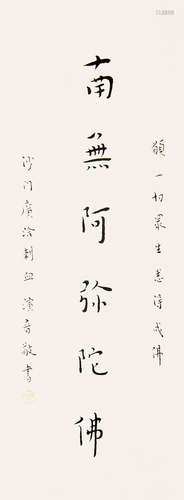 願一切眾生悉得成佛
南無阿弥陀佛
沙門廣洽刺血 演音敬書